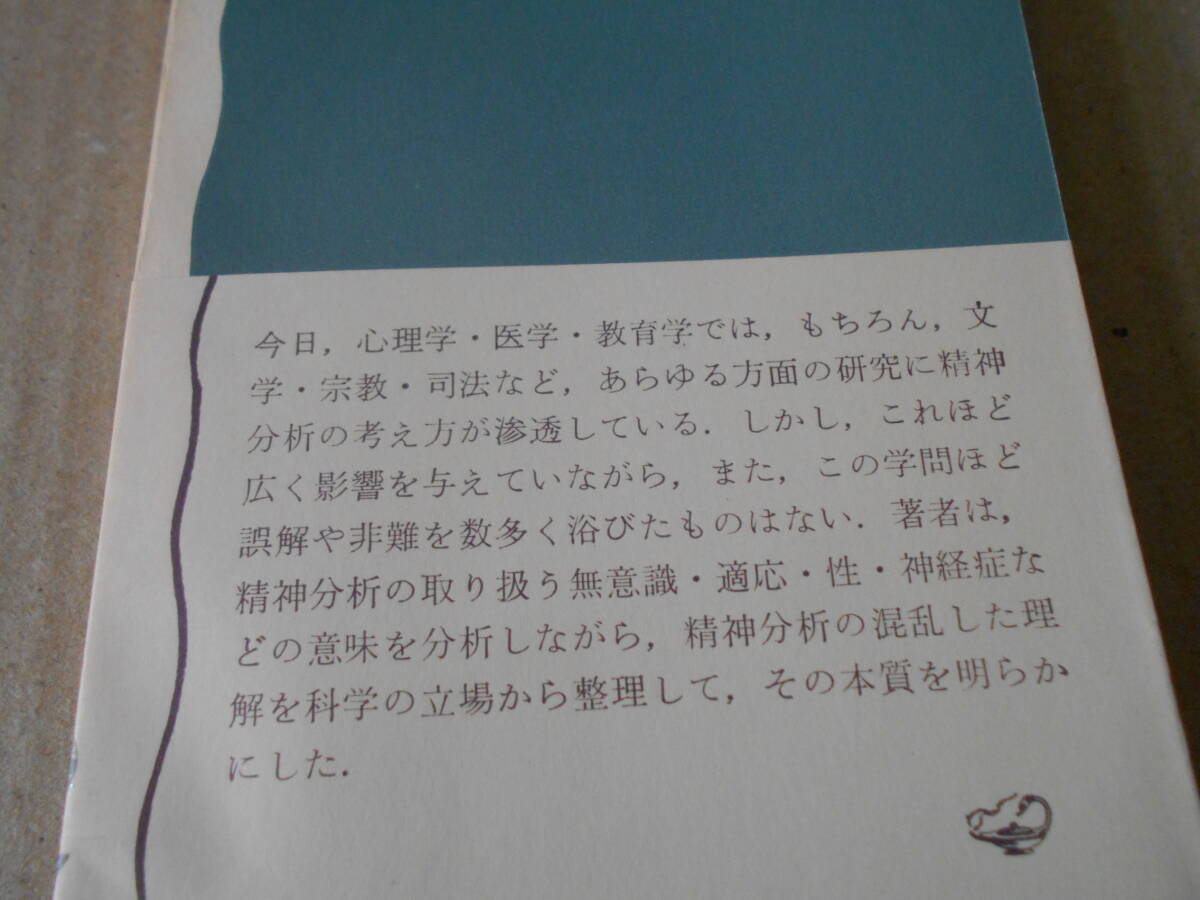 今日，心理学・医学・教育学では，もちろん，文
学・宗教・司法など，あらゆる方面の研究に精神
分析の考え方が滲透している．しかし，これほど
広く影響を与えていながら，また，この学問ほど
誤解や非難を数多く浴びたものはない．著者は，
精神分析の取り扱う無意識・適応・性・神経症な
どの意味を分析しながら，精神分析の混乱した理
解を科学の立場から整理して，その本質を明らか
にした．